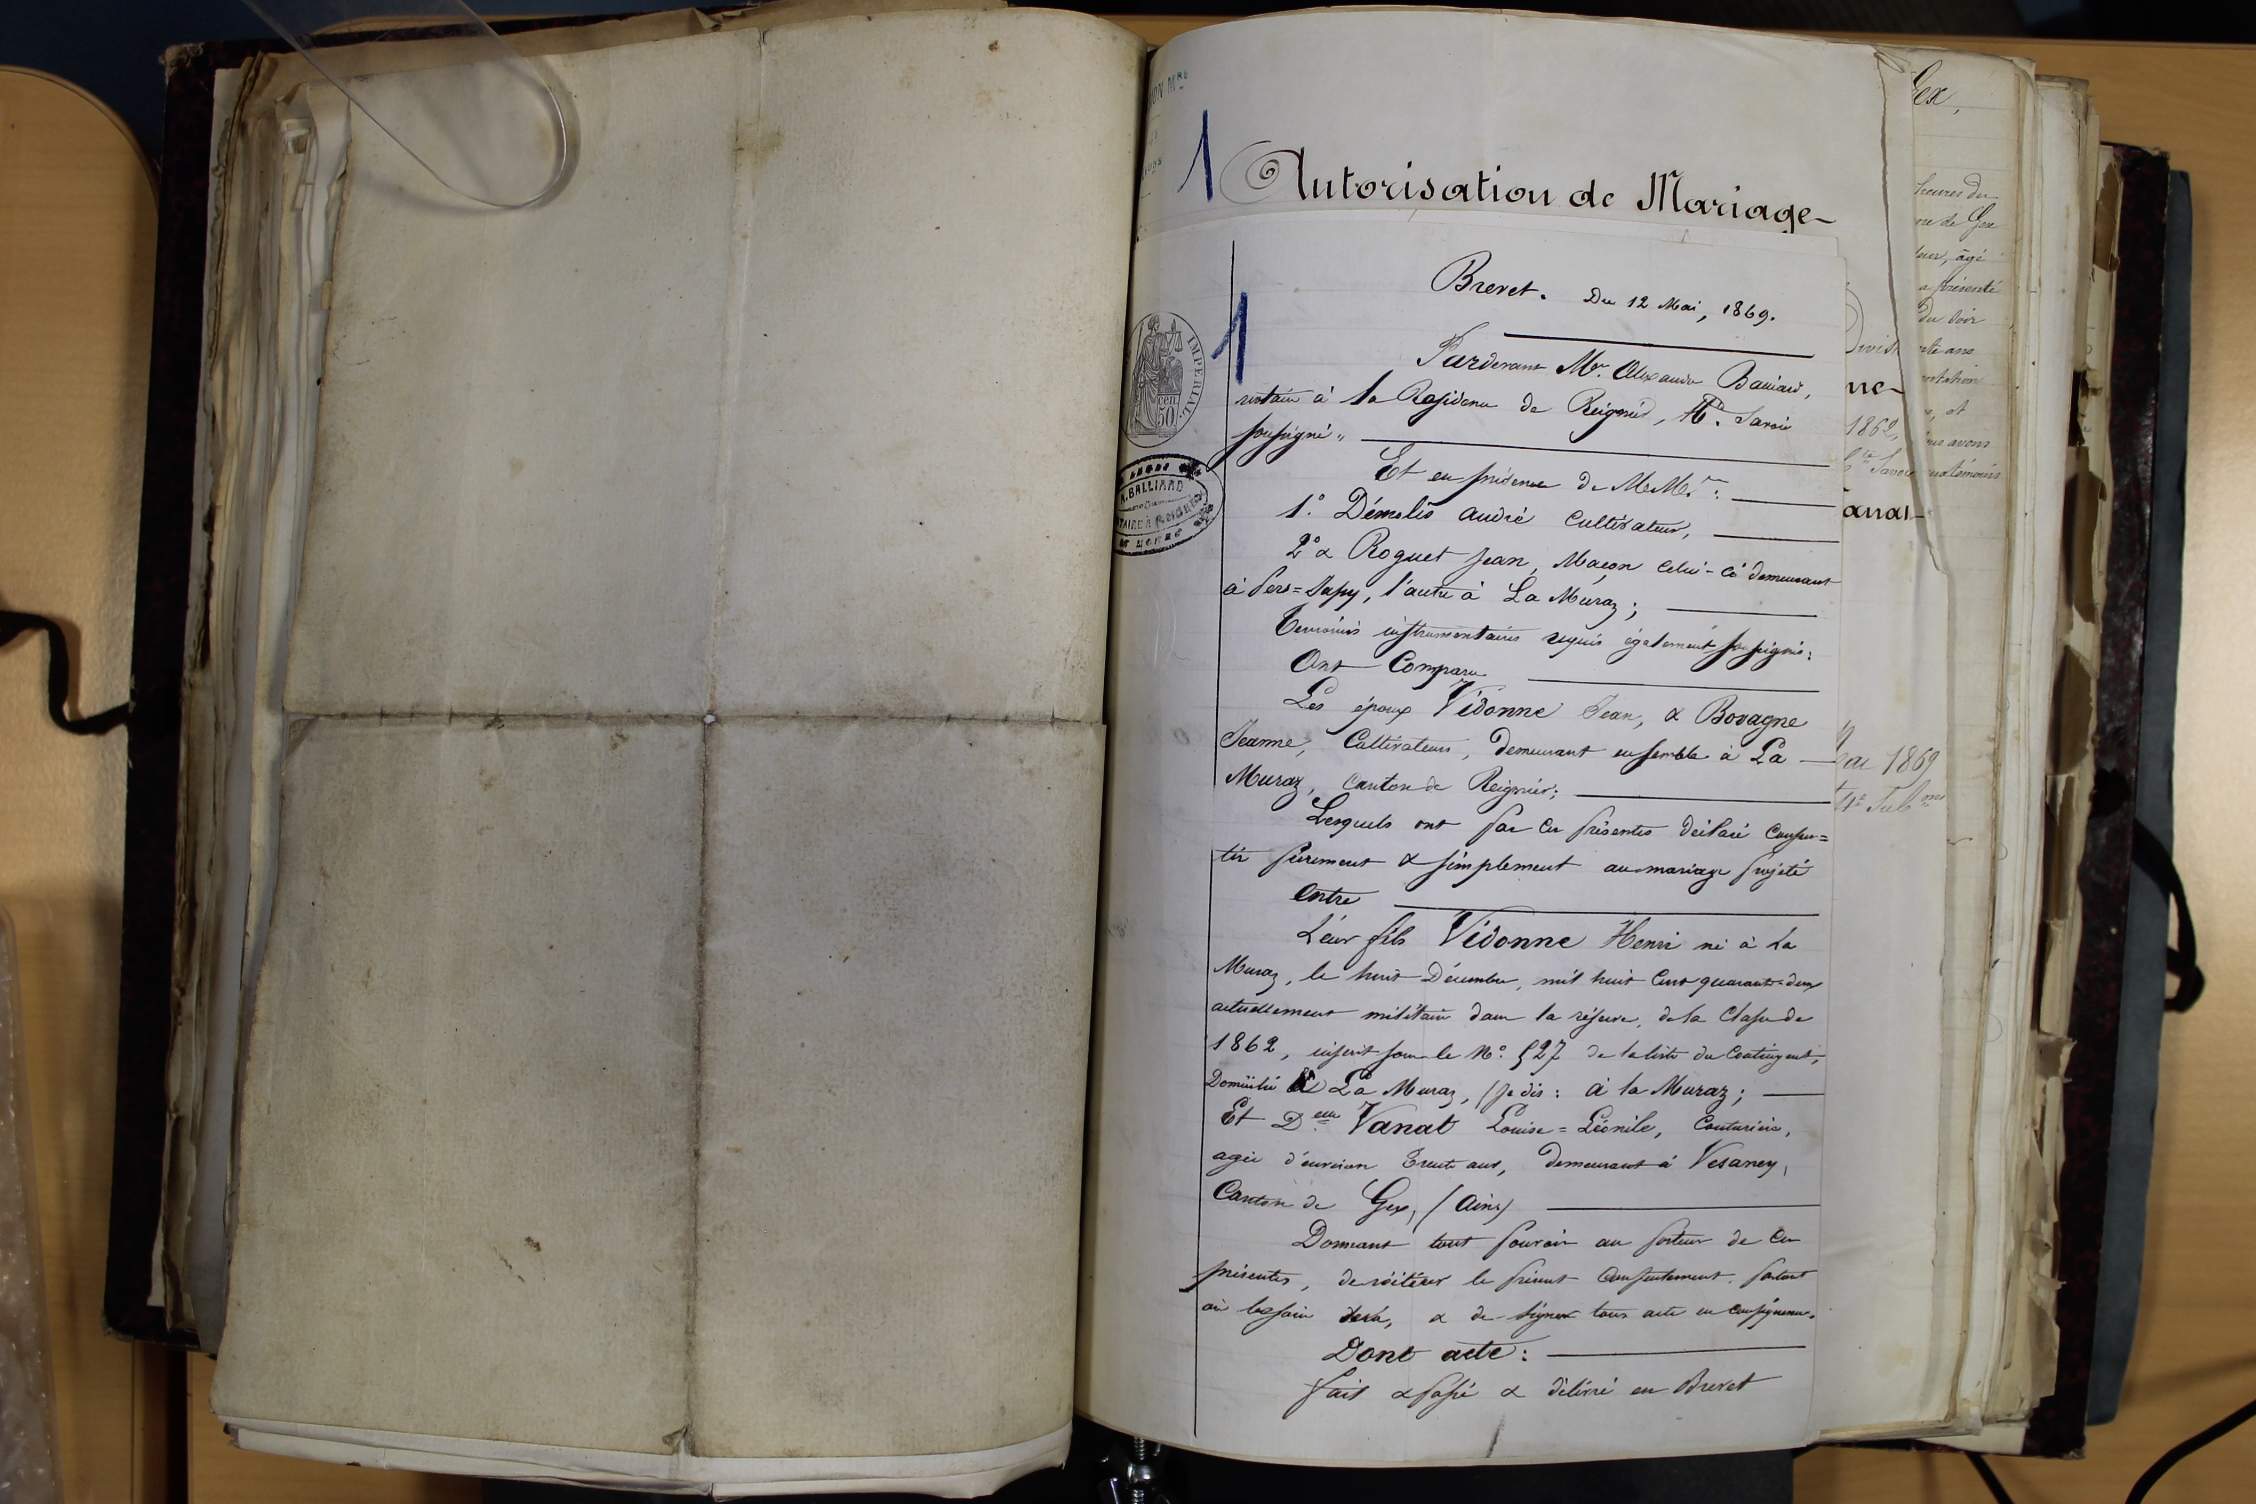 1
Autorisation de Mariage-
Brevet. Du 12 Mai, 1869.
1
Pardevant Mr. Alexandre Balliard,
notaire à la Résidence de Reignier, Hte. Savoie
soussigné "
Et en présence de M.M.rs :
1.° Démolis andré Cultivateur,
2° & Roguet Jean, Maçon Celui-Ci demeurant
à Pers=Jussy, l'autre à La Muraz ;
Témoins instrumentaires requis également soussignés :
Ont Comparu
Les époux Vidonne Jean, & Bovagne
Jeanne, Cultivateurs, demeurant ensemble à La
Muraz, Canton de Reignier ;
Lesquels ont par Ces présentes déclaré Consen=
tir purement & simplement au mariage projeté
entre
Leur fils Vidonne Henri né à La
Muraz, le huit Décembre, mil huit Cent quarante-deux
actuellement militaire dans la réserve, de la Classe de
1862, inscrit sous le N.° 527 de la liste du Contingent,
Domicilié à La Muraz, (Je dis : à la Muraz ;
Et D.elle Vanat Louise=Léonile, Couturière,
agée d'environ Trente ans, demeurant à Vesaney,
Canton de Gex, (Ain)
Donnant tout pouvoir au porteur de Ces
présentes, de réitérer le présent Consentement, partout
où besoin sera, & de signer tous acte en Conséquence.
Dont acte :
fait & passé & délivré en Brevet
IMPERIAL
50 cen
A. BALLIARD
NOTAIRE À REIGNIER
1862,
Mai 1869
Gex,
heures du
de Gex
âgé
a présenté
du soir
ans
et
avons